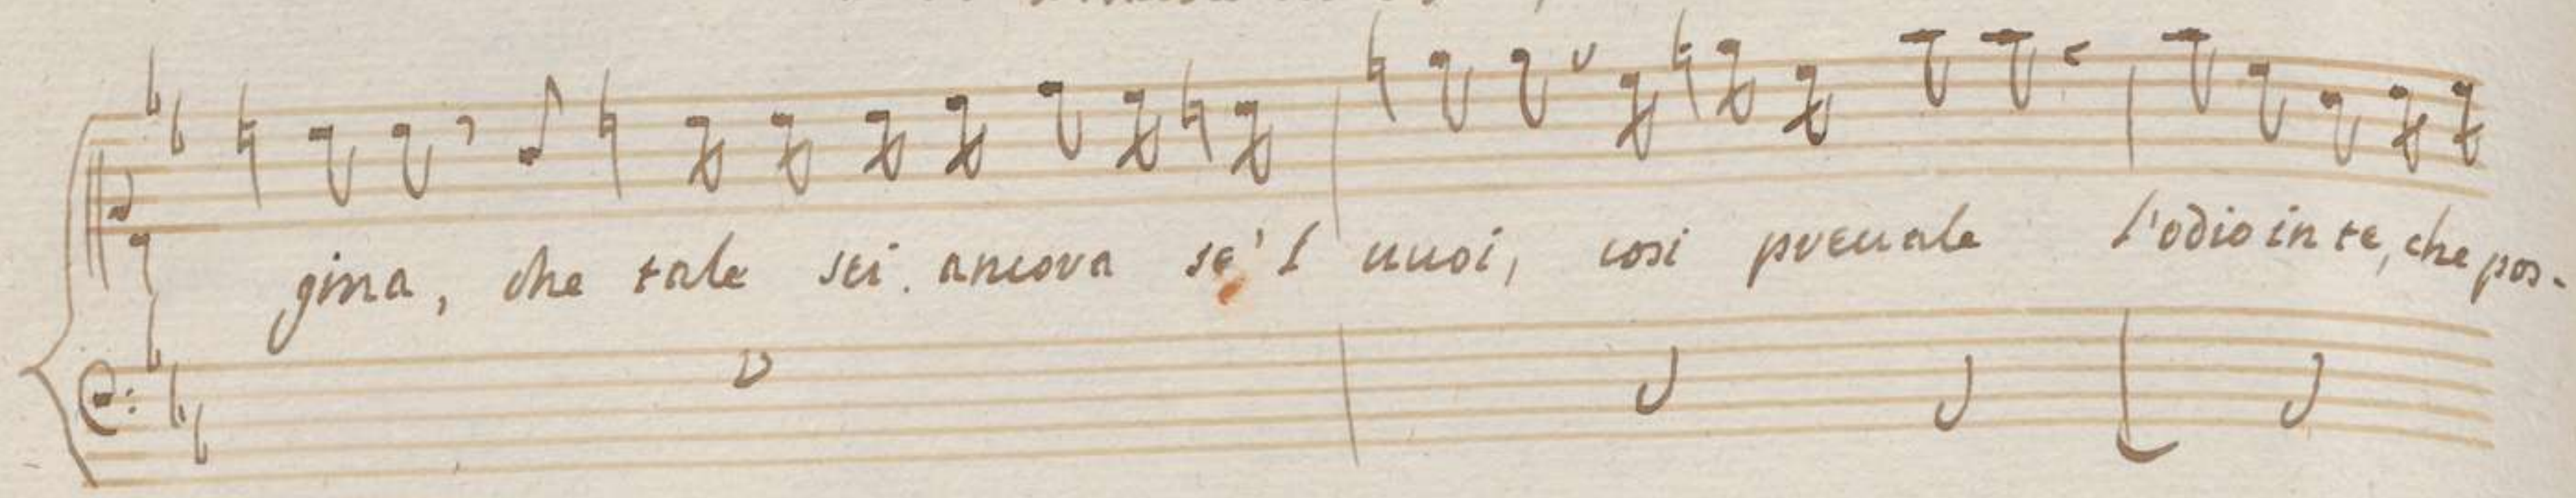 gina, che tale sei. ancora se'l uuoi, cosi preuale l'odio in te, che pos-